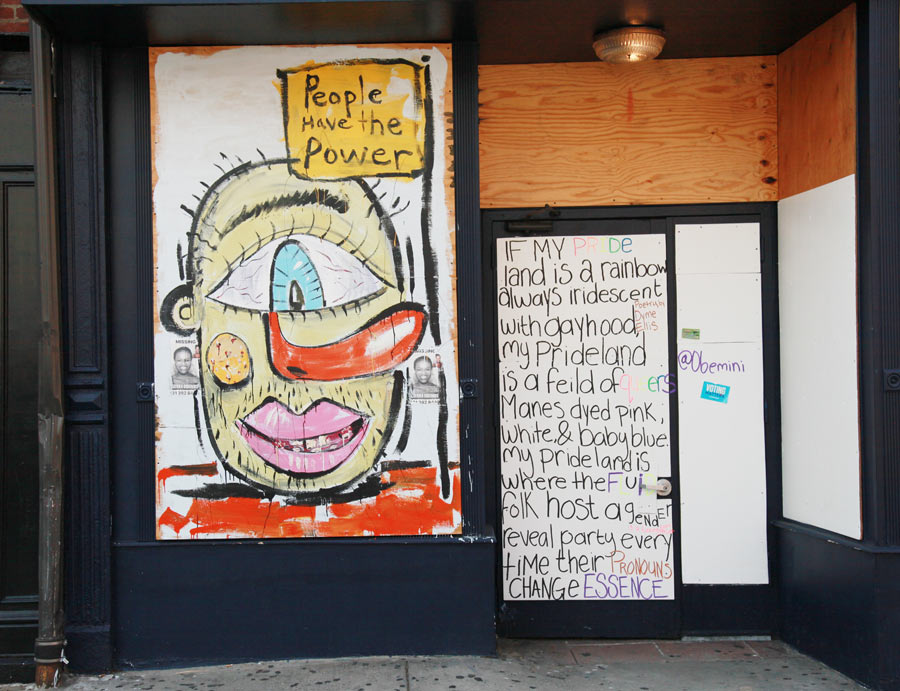 People
Have the
Power
MISSING
IF MY PRIDE
land is a rainbow
always iridescent
with gayhood,
Poetry by
Dyme
Ellis
my Prideland
is a feild of queers
Manes dyed pink,
white, & baby blue.
my prideland is
where the
folk host a gender
reveal party every
time their PRONOUNS
CHANGE ESSENCE
@Obemini
VOTING